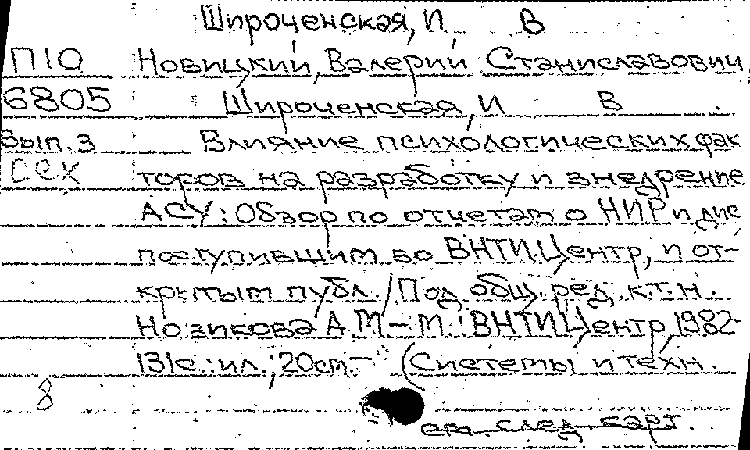 Широченская, И. В
П10 Новицкий, Валерий Станиславович,
6805 Широченская, И В .
Вып. 3 Влияние психологических фак
ССК торов на разработку и внедрение
АСУ: Обзор по отчетам о НИР и дис
поступившим во ВНТИЦентр, и от-
крытым публ. / Под общ. ред. к.т.н.
Новикова А.М.- М.: ВНТИЦентр, 1982-
131с.: ил.; 20см.- (Системы и техн.
8
см. след. карт.